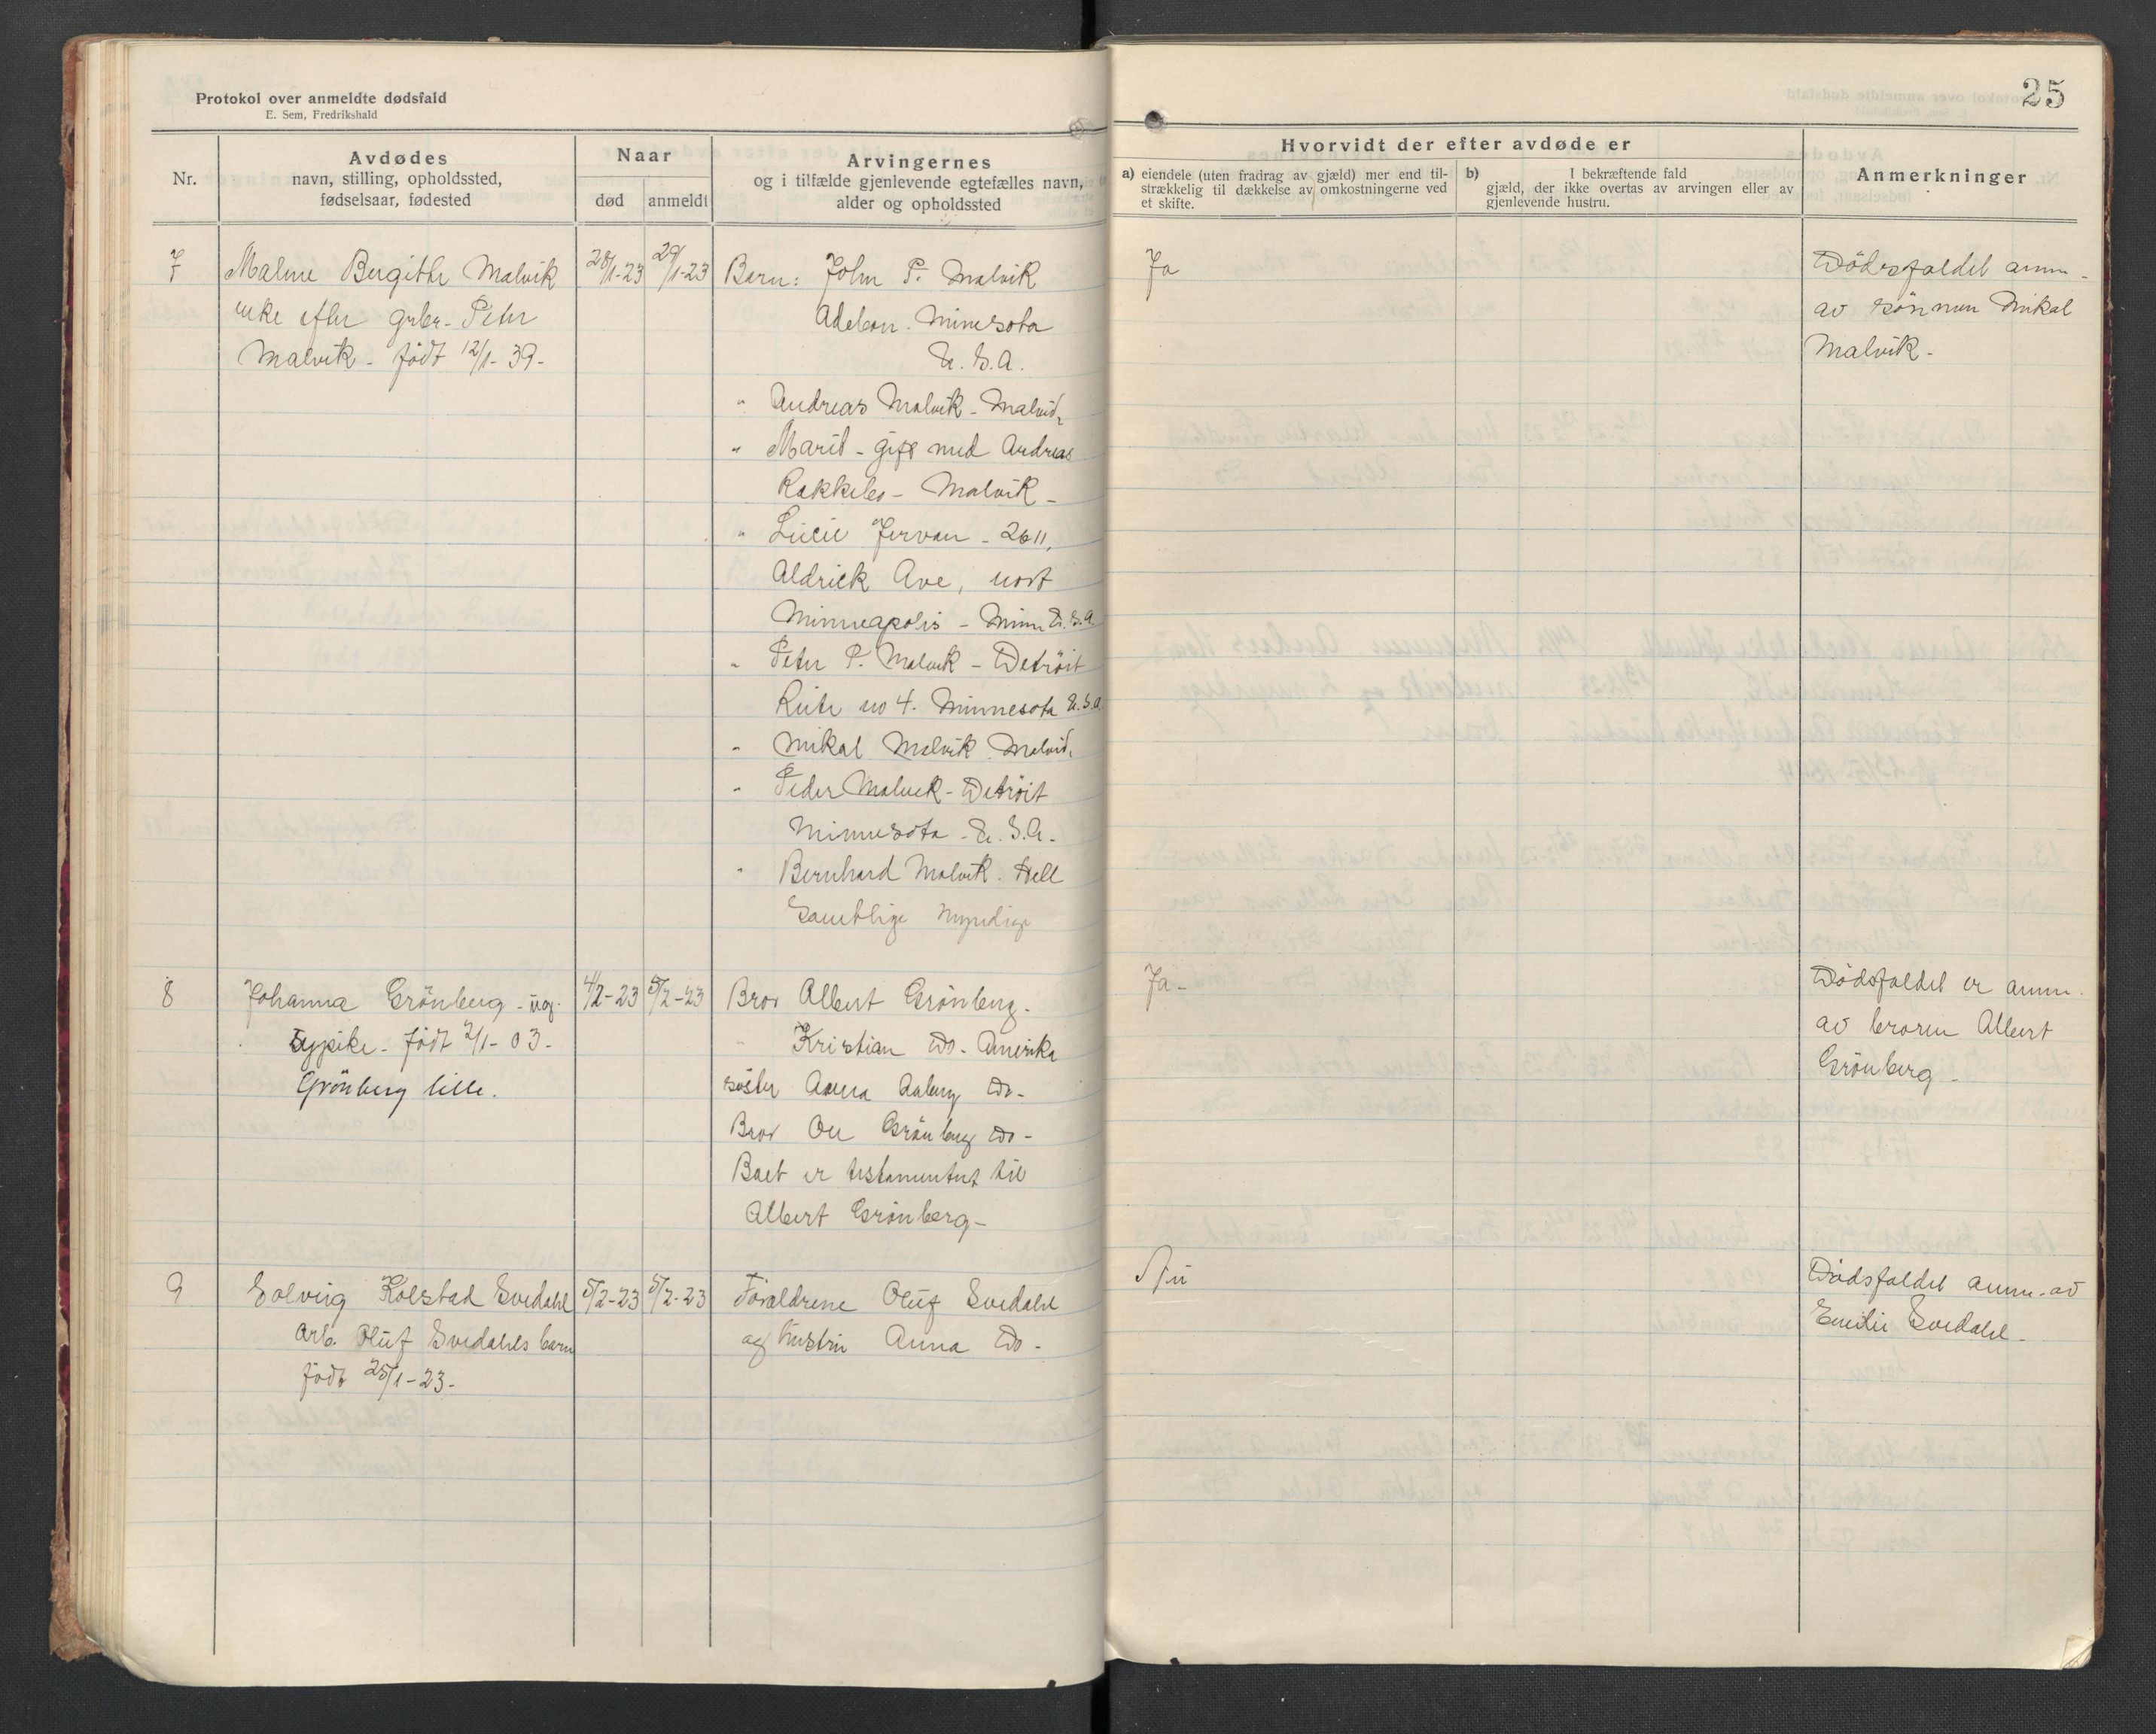 Protokol over anmeldte dødsfald
E. Sem, Fredrikshald
25
Nr.
Avdødes
navn, stilling, opholdssted,
fødselsaar, fødested
Naar
død
anmeldt
Arvingernes
og i tilfælde gjenlevende egtefælles navn,
alder og opholdssted
Hvorvidt der efter avdøde er
a) eiendele (uten fradrag av gjæld) mer end til-
strækkelig til dækkelse av omkostningerne ved
et skifte.
b) I bekræftende fald
gjæld, der ikke overtas av arvingen eller av
gjenlevende hustru.
Anmerkninger
7
Malene Bergithe Malvik
enke efter grbr. Peter
Malvik - født 12/1- 39-
28/1-23
29/1-23
Barn: John P. Malvik
Minesota
U.S.A.
" Andreas Malvik - Malvik
" Marit - gift med Andreas
Malvik -
" Lucie Jervan - 2611,
Aldrick Ave, nort
Minneapolis - Minn U.S.A.
" Peter P. Malvik - Detröit
Rute no 4. Minnesota U.S.A.
" Mikal Malvik Malvik
" Peder Malvik - Detröit
Minnesota - U.S.A.
" Bernhard Malvik. Hell
Samtlige myndige
Ja
Dödsfaldet anm.
av sönnen Mikal
Malvik -
8
Johanna Grönberg - ug.
sypike - født 2/1- 03-
Grönberg lille.
4/2-23
5/2-23
Bror Albert Grönberg -
" Kristian do - Amerika
söster Anna Aaberg do -
Bror Ole Grönberg do -
Boet er testamentert til
Albert Grönberg -
Ja -
Dödsfaldet er anm.
av broren Albert
Grönberg -
9
Solveig Kolstad Svedahl
Arb. Oluf Svedahls barn
født 25/1-23-
5/2-23
5/2-23
Forældrene Oluf Svedahl
og hustru Anna do -
Nei
Dödsfaldet anm. av
Emilie Svedahl -